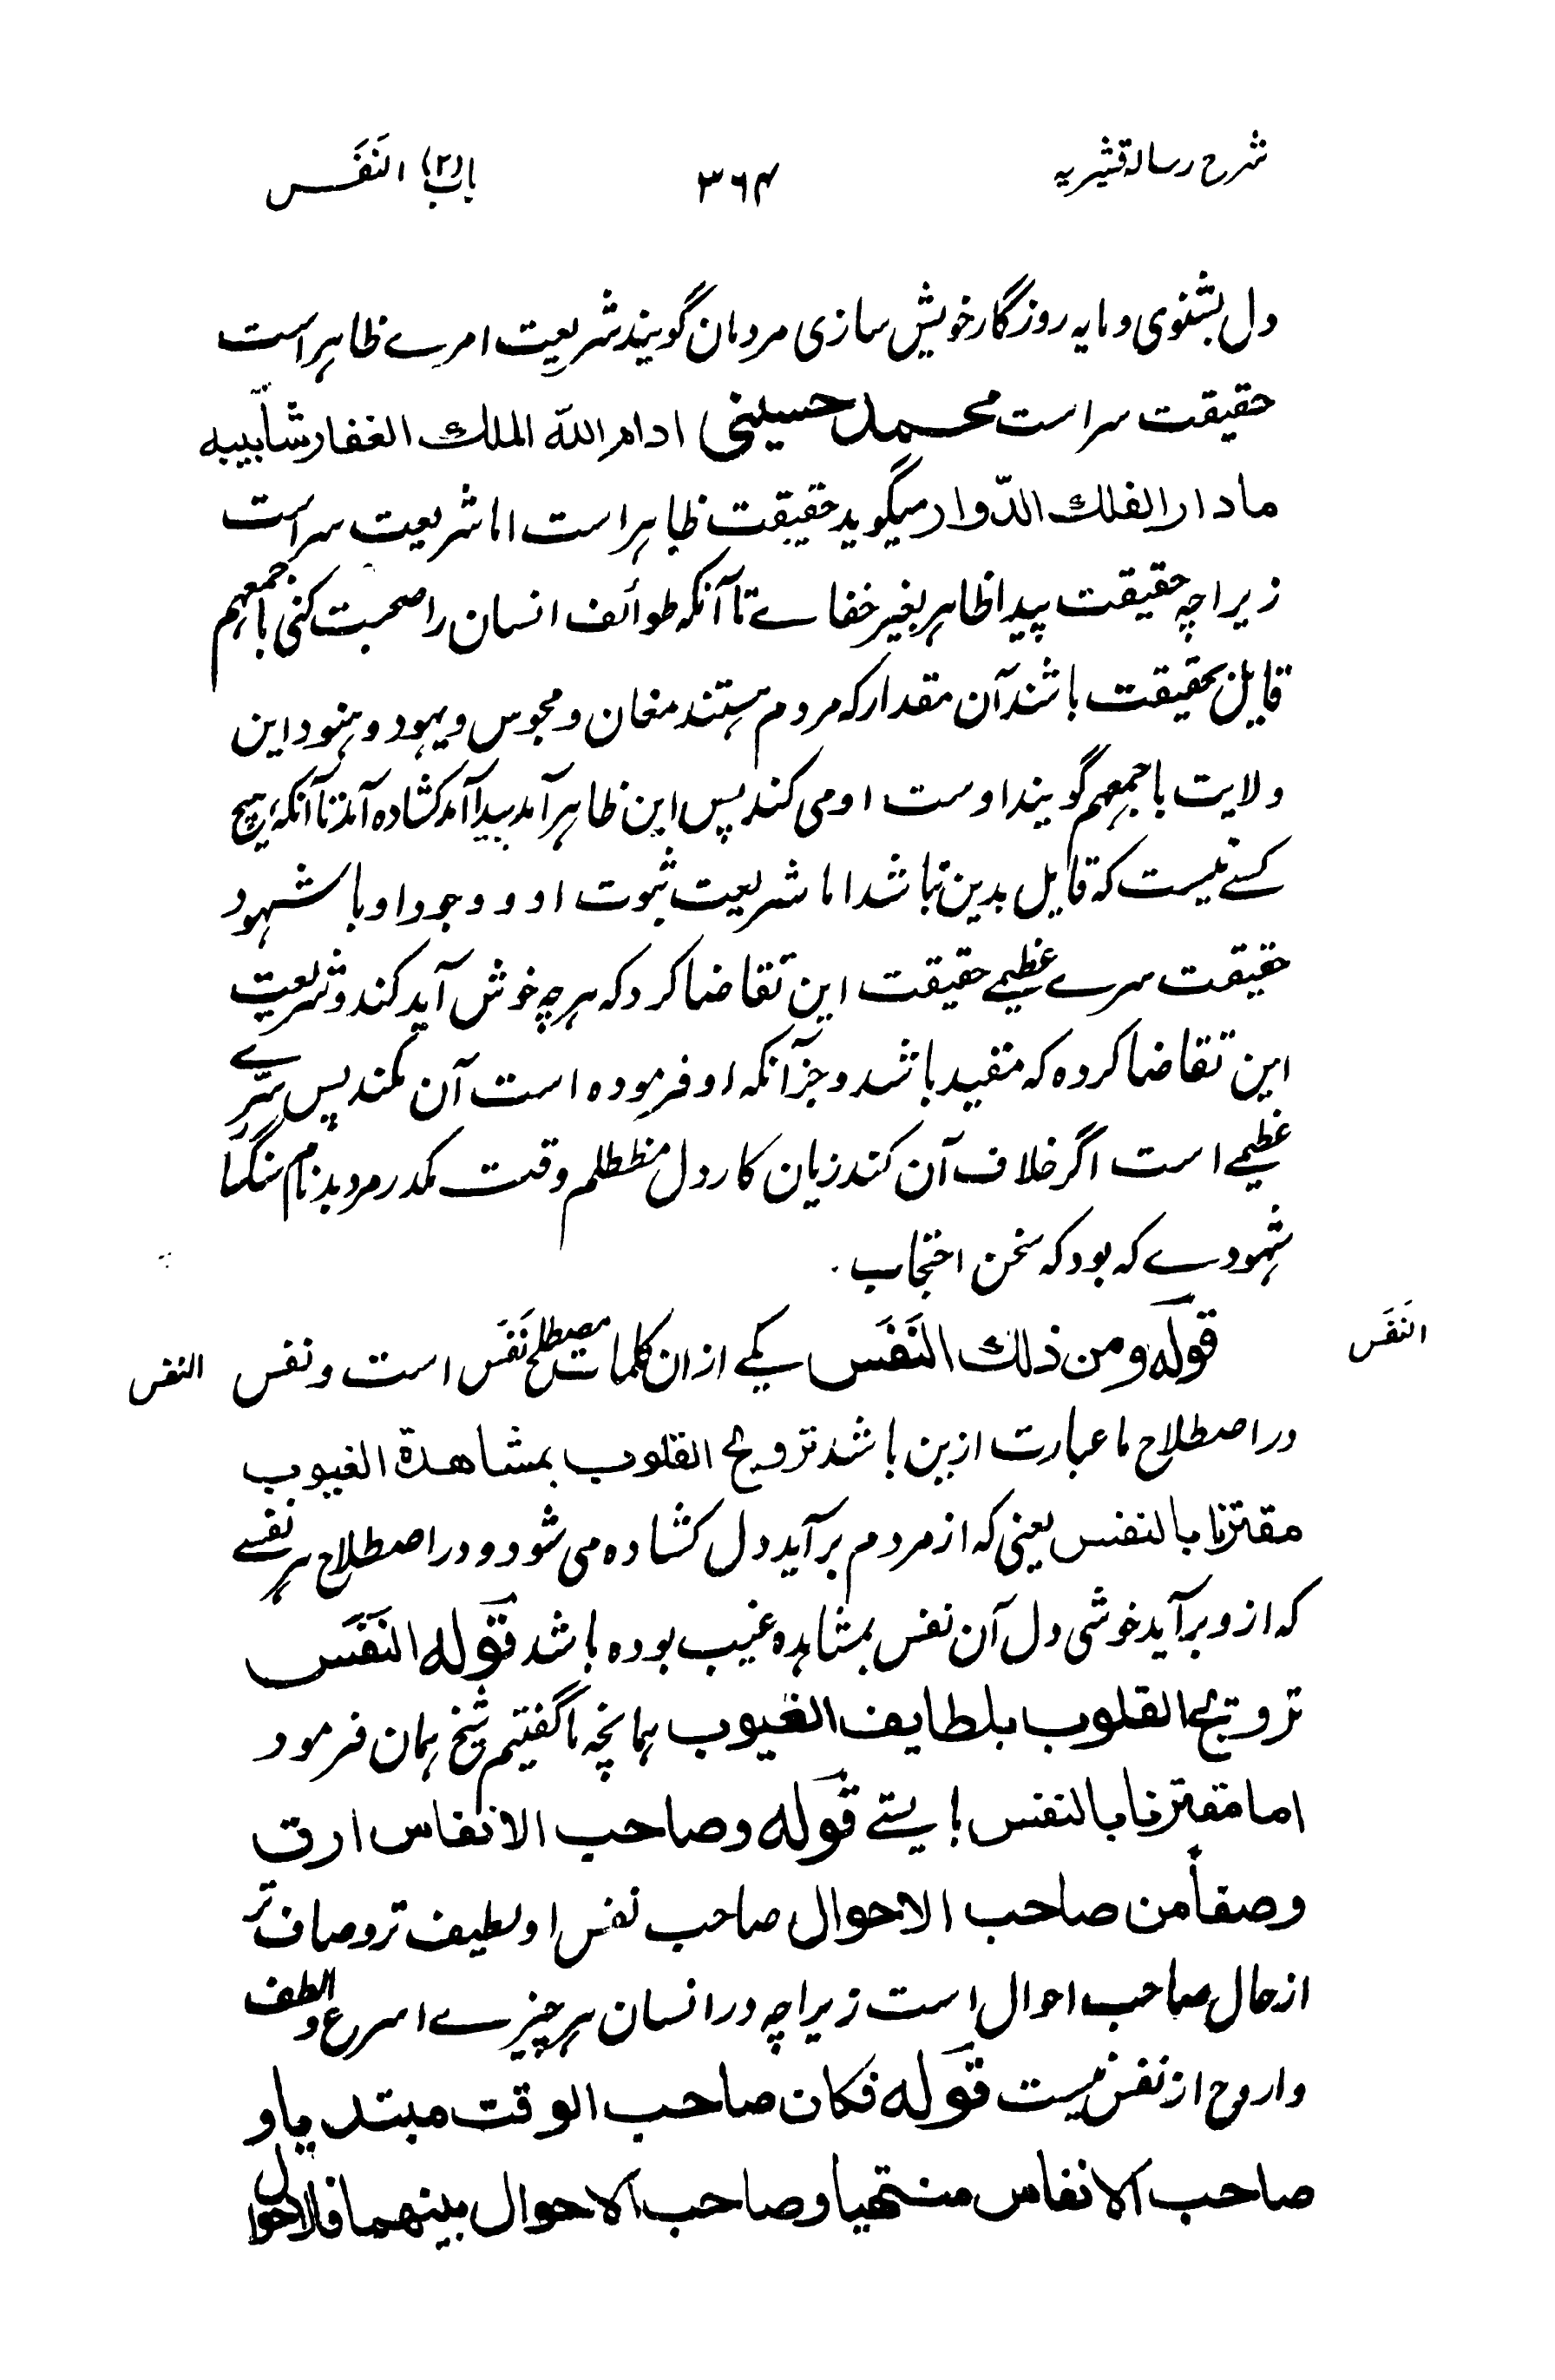 شرح رسالہ قشیریہ ۳۶۴ باب (۲) النَفَس
دل بشنوی و مایہ روزگار خویش سازی مردمان گویند شریعت امرے ظاہر است
حقیقت سر است محمد حسینی ادام اللہ الملک الغفار شآبیبہ
ما دار الفلک الدّوار میگوید حقیقت ظاہر است اما شریعت سر است
زیراچہ حقیقت پیدا ظاہر بغیر خفاے تا آنکہ طوائف انسان را صحبت کنی باجمعہم
قایل بحقیقت باشند آن مقدار کہ مردم ہستند مغان و مجوس و یہود و ہنود این
ولایت باجمعہم گویند اوست او می کند پس این ظاہر آمد پیدا آمد کشادہ آمد تا آنکہ ہیچ
کسے نیست کہ قایل بدین نباشد اما شریعت ثبوت او و وجود او با شہود
حقیقت سرے عظیمے حقیقت این تقاضا کرد کہ ہرچہ خوش آید کند و شریعت
این تقاضا کردہ کہ مقید باشد و جز آنکہ او فرمودہ است آن نکند پس سرّے
عظیمے است اگر خلاف آن کند زیان کار دل مظلم وقت مکدر مرد بدنام
شہودے کہ بود کہ سخن احتجاب .
النَفَس
قولہ ومن ذلک النَفَس یکے ازان کلمات مصطلح نَفَس است و نفس
النفس
در اصطلاح ما عبارت ازین باشد ترویح القلوب بمشاھدة الغیوب
مقترنا بالنفس یعنی کہ از مردم برآید دل کشادہ می شود و در اصطلاح ہر نفسے
کہ ازو برآید خوشی دل آن نفس بمشاہدہ غیب بودہ باشد قولہ النَفَس
ترویح القلوب بلطایف الغیوب ہمانچہ ما گفتیم شیخ ہمان فرمود
اما مقترنا بالنفس بایستے قولہ وصاحب الانفاس ارق
وصفاً من صاحب الاحوال صاحب نفس او لطیف تر و صاف تر
از حال صاحب احوال است زیراچہ در انسان ہر چیزے اسرع و الطف
و اروح از نفس نیست قولہ فکان صاحب الوقت مبتدیا و
صاحب الانفاس منتھیا وصاحب الاحوال بینھما فالاحوال